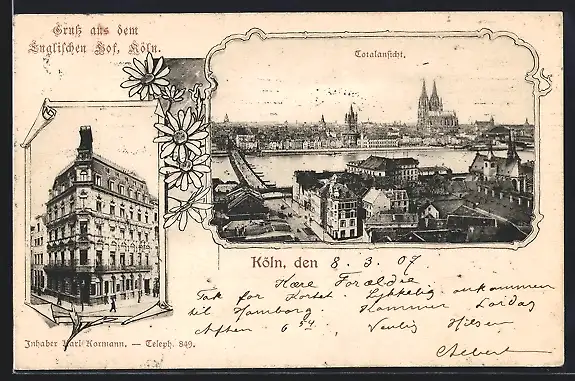 Gruß aus dem
Englischen Hof, Köln.
Totalansicht.
Köln, den 8. 3. 07
Kære Forældre
Tak for Kortet. Lykkelig ankommen
til Hamborg Kommer Lørdag
Aften 6 54. Venlig Hilsen
Inhaber Karl Kormann. — Teleph. 849.